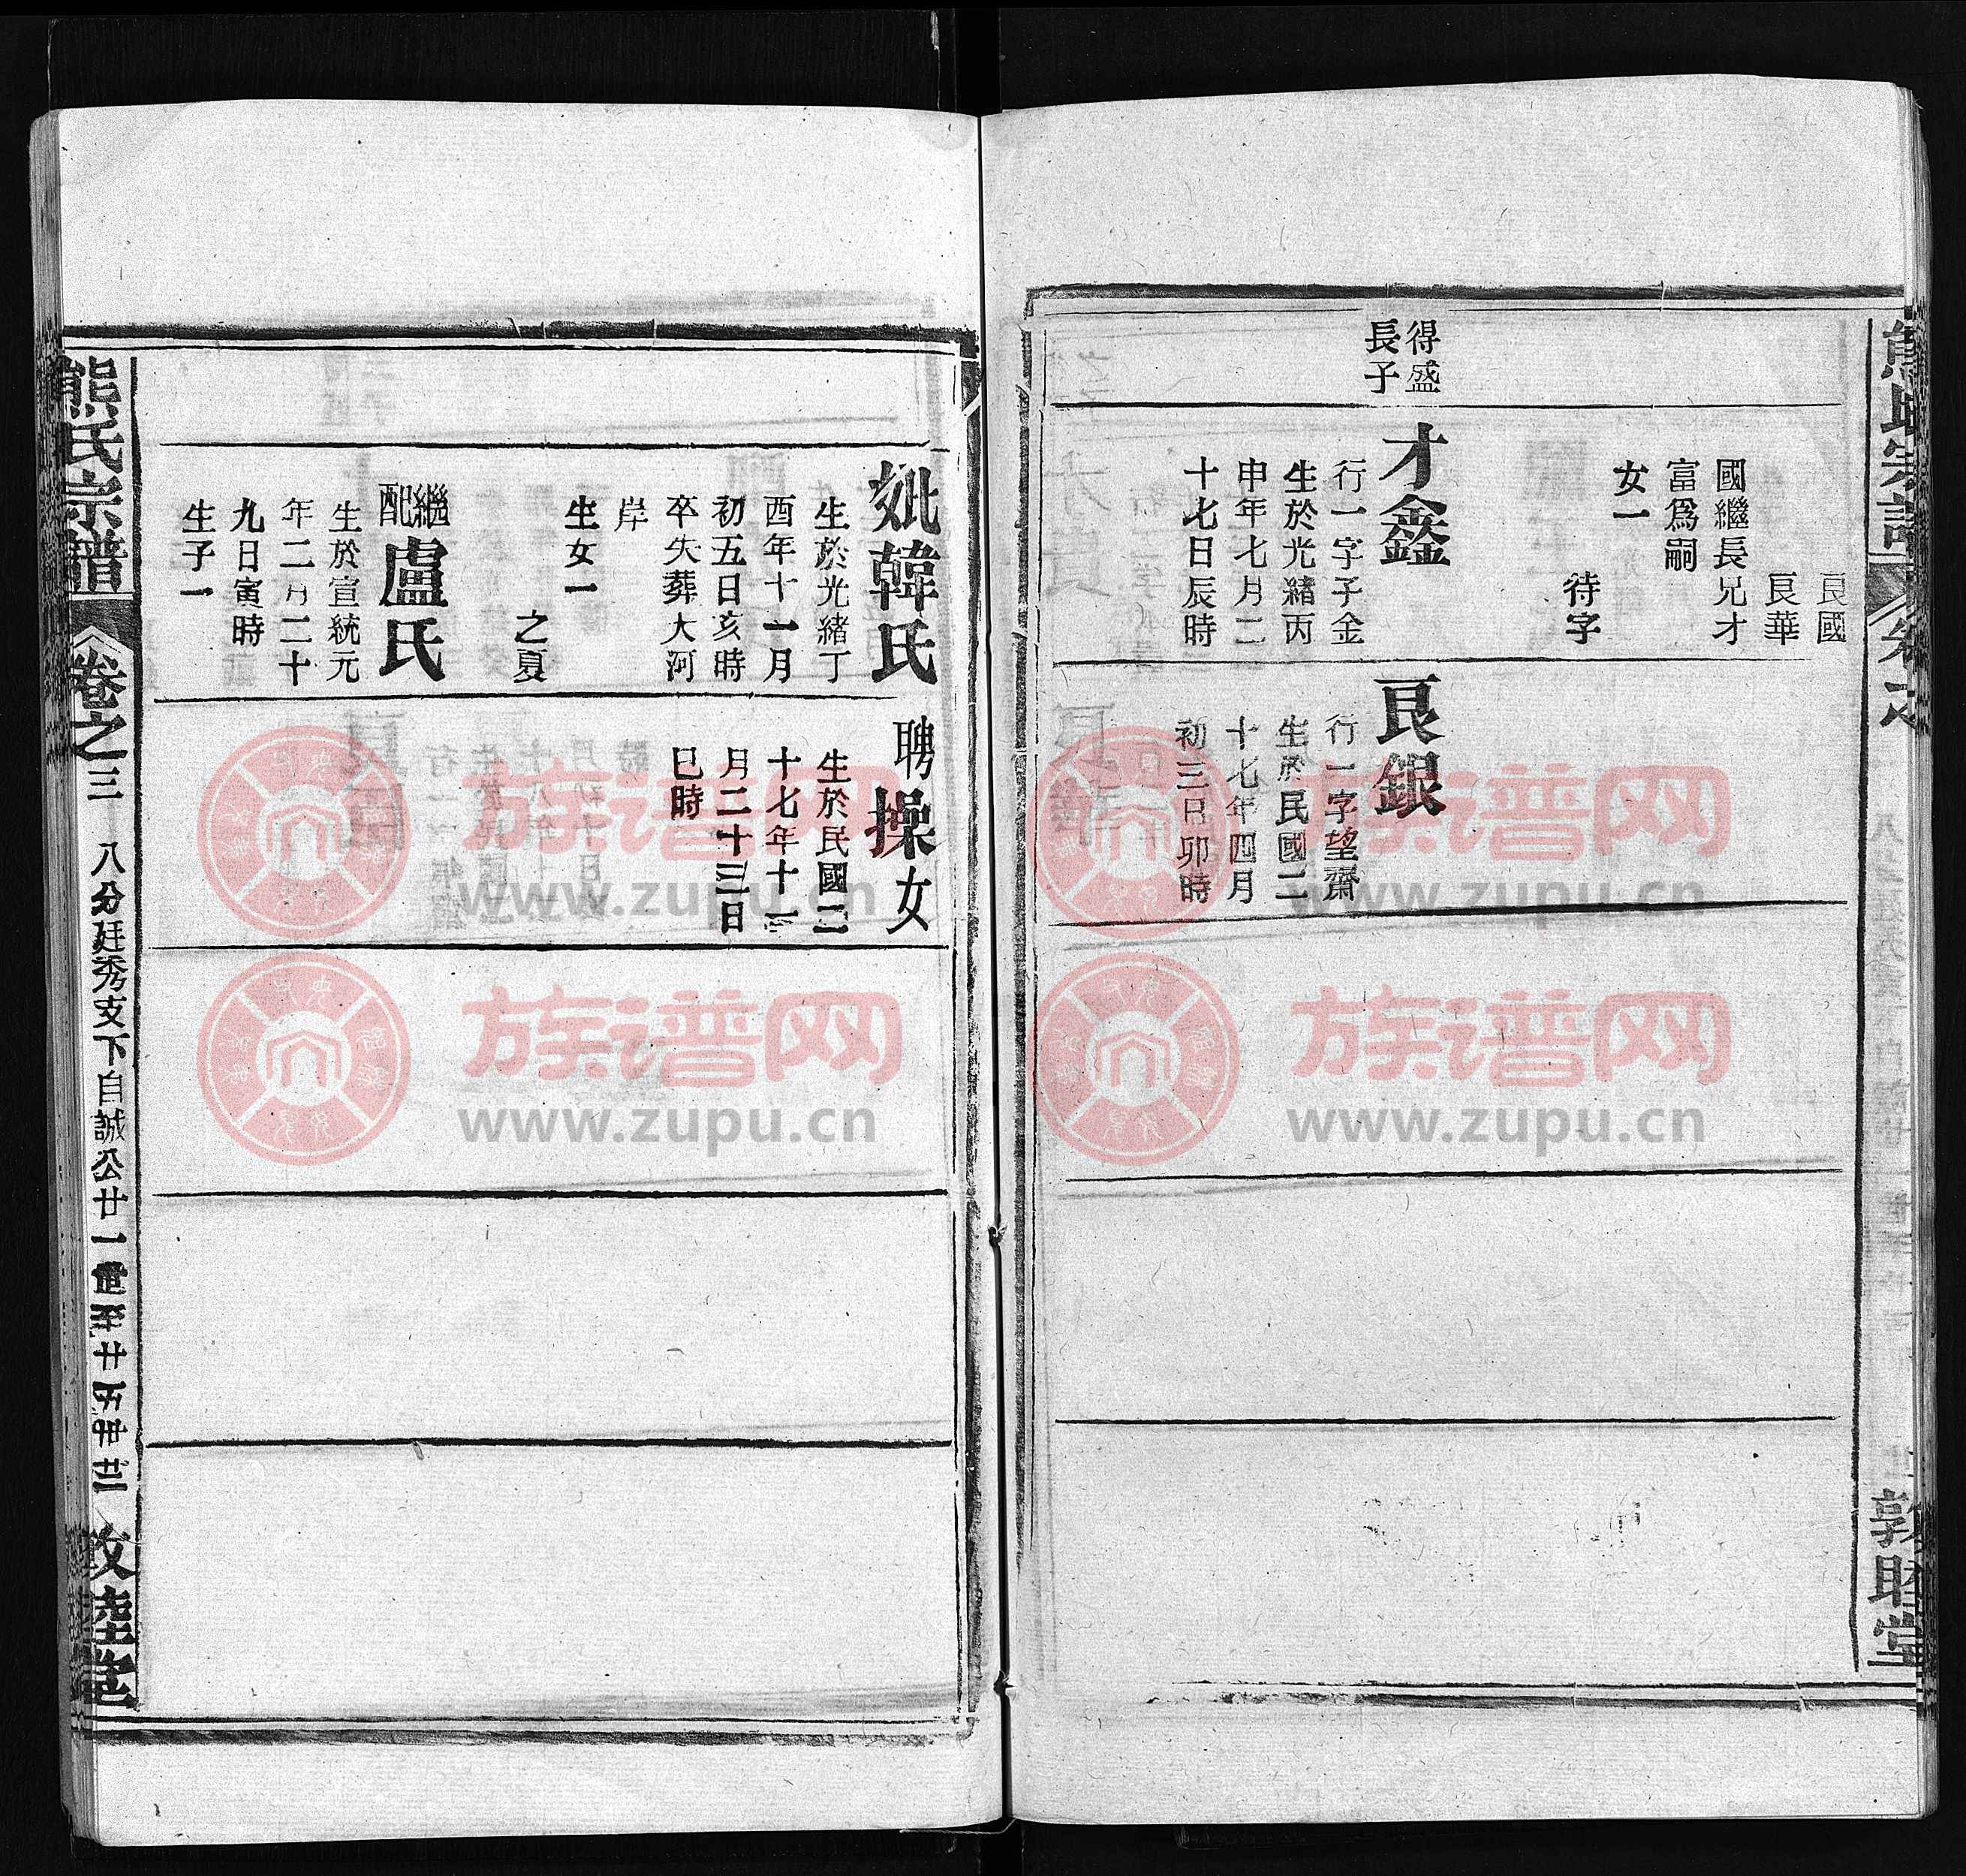 熊氏宗譜
卷之
敦睦堂
良國
良華
國繼長兄才
富爲嗣
女一
待字
得盛
長子
才鑫
行一字子金
生於光緒丙
申年七月二
十七日辰時
良銀
行一字望齋
生於民國二
十七年四月
初三日卯時
妣韓氏
生於光緒丁
酉年十一月
初五日亥時
卒失葬大河
岸
生女一
之夏
繼配
盧氏
生於宣統元
年二月二十
九日寅時
生子一
聘操女
生於民國二
十七年十一
月二十三日
巳時
熊氏宗譜
卷之三
八分廷秀支下自誠公廿一世至廿五世
敦睦堂
族谱网
www.zupu.cn
族谱网
www.zupu.cn
族谱网
www.zupu.cn
族谱网
www.zupu.cn